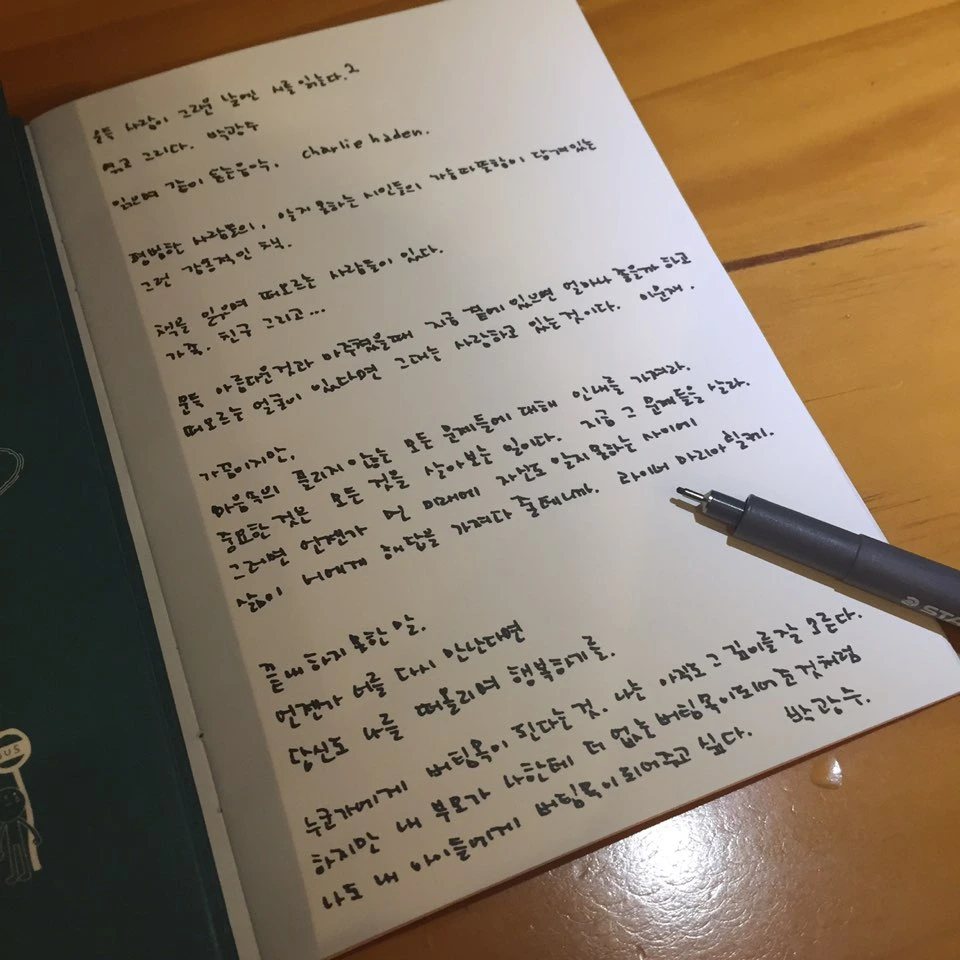 문득 사람이 그리운 날엔 시를 읽는다.2
엮고 그리다. 박광수
읽으며 같이 들은음악, charlie haden.
평범한 사람들의, 알지 못하는 시인들의 가슴따뜻함이 담겨있는
그런 감동적인 책.
책을 읽으며 떠오르는 사람들이 있다.
가족. 친구 그리고...
문득 아름다운것과 마주쳤을때 지금 곁에 있으면 얼마나 좋을까 하고
떠오르는 얼굴이 있다면 그대는 사랑하고 있는 것이다. 이문재.
가끔이지만,
마음속의 풀리지 않는 모든 문제들에 대해 인내를 가져라.
중요한 것은 모든 것을 살아보는 일이다. 지금 그 문제들을 살라.
그러면 언젠가 먼 미래에 자신도 알지 못하는 사이에
삶이 너에게 해답을 가져다 줄테니까. 라이너 마리아 릴케.
끝내 하지 못한 말.
언젠가 너를 다시 만난다면
당신도 나를 떠올리며 행복하기를.
누군가에게 버팀목이 된다는 것. 나는 아직도 그 깊이를 잘 모른다.
하지만 내 부모가 나한테 더 없는 버팀목이 되어준 것처럼
나도 내 아이들에게 버팀목이 되어주고 싶다. 박광수.
STA